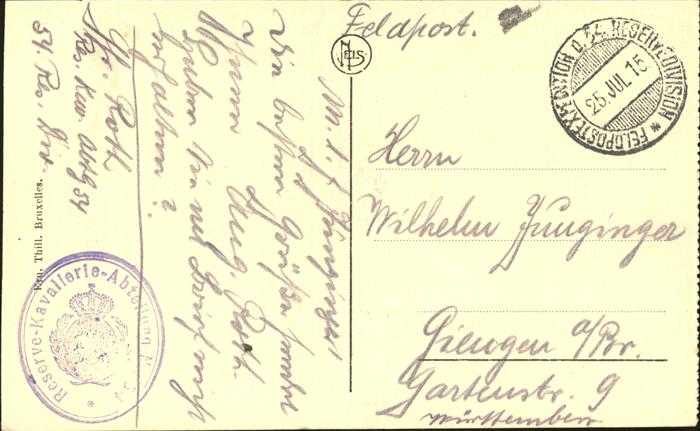 Feldpost.
FELDPOSTEXPEDITION D. 54. RESERVEDIVISION *
25. JUL. 15
NELS
Herrn
Wilhelm Junginger
Giengen a/Br.
Gartenstr. 9
Württemberg
M. l. Junginger!
Die besten Grüße sendet
Ihnen Aug. Roth.
Haben Sie mei Brief nicht
erhalten?
Roth
Res. Kav. Abtlg 54
54. Res. Div.
Ern. Thill, Bruxelles.
Reserve-Kavallerie-Abteilung N